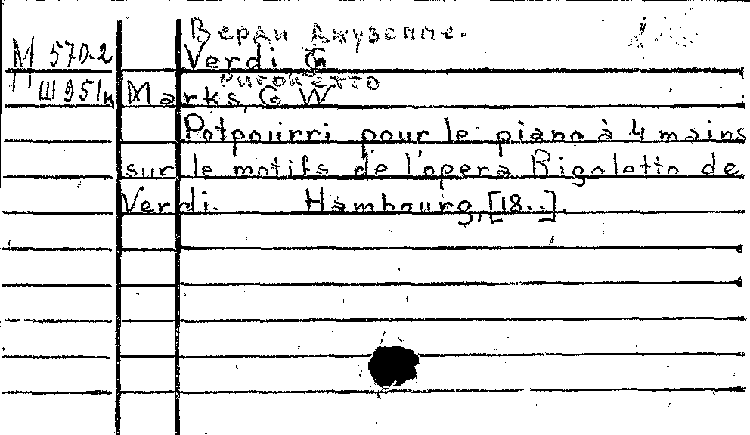 Верди Джузеппе.
М 570-2 Verdi G
Риголетто
Ш951м Marks, G W
Potpourri pour le piano à 4 mains
sur le motifs de l'opera Rigoletto de
Verdi. Hambourg, [18..].